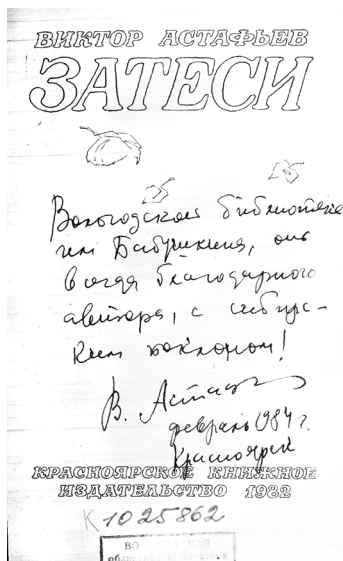 ВИКТОР АСТАФЬЕВ
ЗАТЕСИ
Вологодской библиотеке
им Бабушкина, от
всегда благодарного
автора, с сибирс-
ким поклоном!
В. Астафьев
февраль 1984 г.
Красноярск
КРАСНОЯРСКОЕ КНИЖНОЕ
ИЗДАТЕЛЬСТВО 1982
К1025862